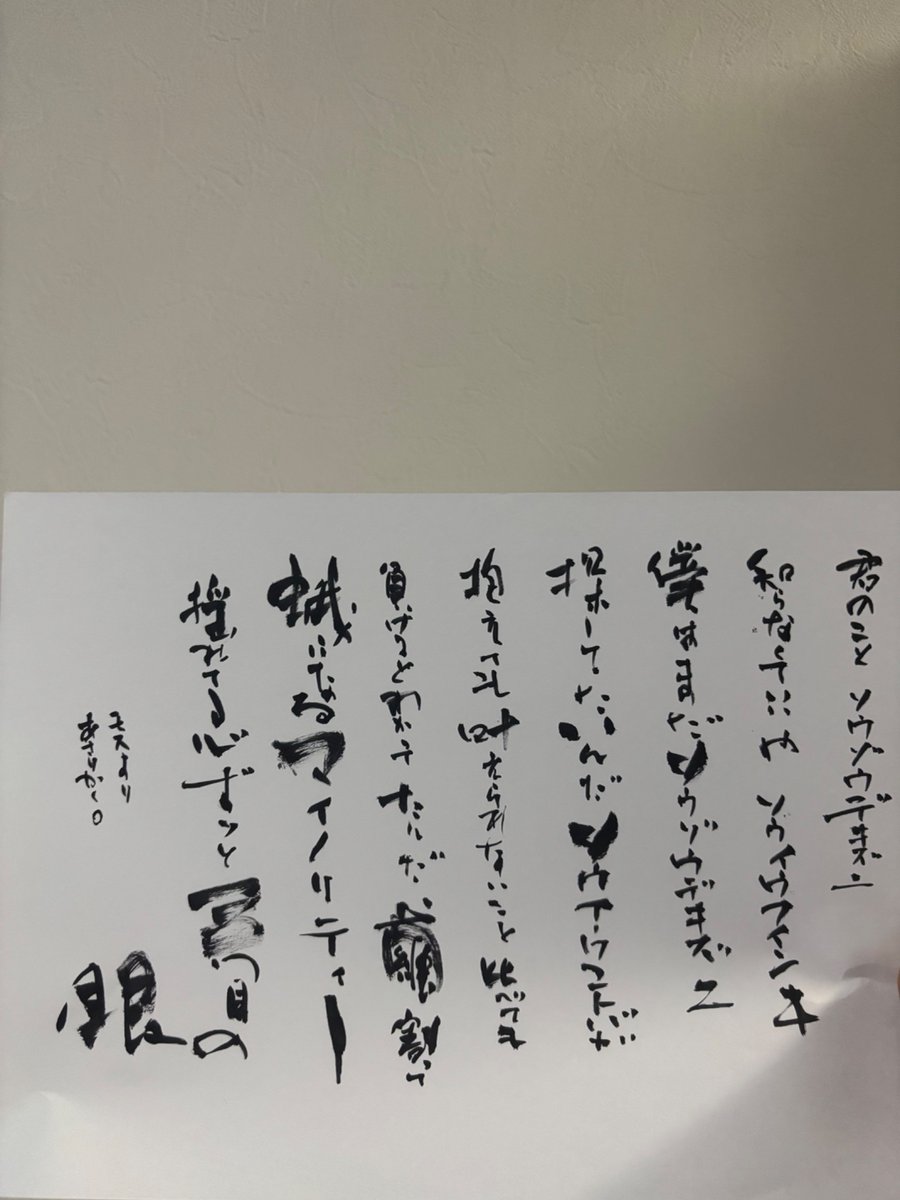 君のこと ソウゾウデキズニ
知らなくていいや ソウイウフインキ
僕はまだソウゾウデキズニ
探ホーしたいんだ ソウナーリマコトガ
抱えても叶えられないこと比べても
負けるとわかってただ、繭割って
蛾になるマイノリティー
揺れてる心ずっと三つ目の
眼
モスより
あさりかく。